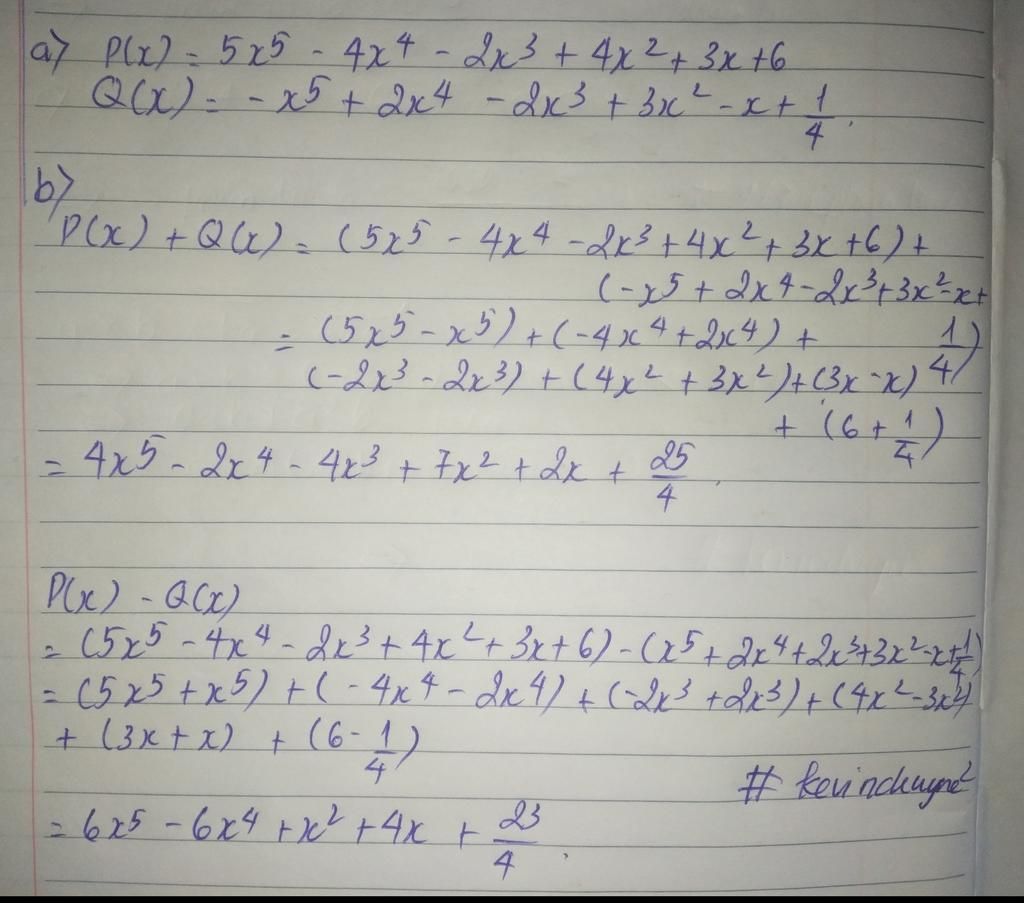 a) P(x) = 5x⁵ - 4x⁴ - 2x³ + 4x² + 3x + 6
Q(x) = -x⁵ + 2x⁴ - 2x³ + 3x² - x + 1/4.
b)
P(x) + Q(x) = (5x⁵ - 4x⁴ - 2x³ + 4x² + 3x + 6) +
(-x⁵ + 2x⁴ - 2x³ + 3x² - x + 1/4)
= (5x⁵ - x⁵) + (-4x⁴ + 2x⁴) +
(-2x³ - 2x³) + (4x² + 3x²) + (3x - x)
+ (6 + 1/4)
= 4x⁵ - 2x⁴ - 4x³ + 7x² + 2x + 25/4.
P(x) - Q(x)
= (5x⁵ - 4x⁴ - 2x³ + 4x² + 3x + 6) - (x⁵ + 2x⁴ + 2x³ + 3x² - x + 1/4)
= (5x⁵ + x⁵) + (-4x⁴ - 2x⁴) + (-2x³ + 2x³) + (4x² - 3x²)
+ (3x + x) + (6 - 1/4)
#
= 6x⁵ - 6x⁴ + x² + 4x + 23/4.